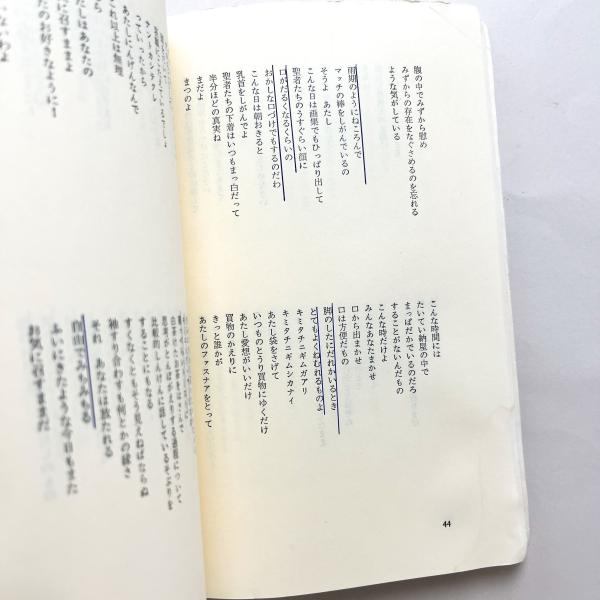 腹の中でみずから慰め
みずからの存在をなぐさめるのを忘れる
ような気がしている
雨期のようにねころんで
マッチの棒をしがんでいるの
そうよ　あたし
こんな日は画集でもひっぱり出して
聖者たちのうすぐらい顔に
口がだるくなるくらいの
おかしな口づけでもするのだわ
こんな日は朝おきると
乳首をしがんでよ
聖者たちの下着はいつもまっ白だって
半分ほどの真実ね
まだよ
まつのよ
こんな時間には
たいてい納屋の中で
まっぱだかでいるのだろ
することがないんだもの
こんな時だけよ
みんなあなたまかせ
口から出まかせ
口は方便だもの
脚のしたにだれかいるとき
とてもよくねむれるものよ
キミタチニギムガアリ
キミタチニギムシカナイ
あたし袋をさげて
いつものとうり買物にゆくだけ
あたし愛想がいいだけ
買物のかえりに
きっと誰かが
あたしのファスナアをとって
44
これ以上は無理
たしはあなたの
に召すままよ
たのお好きなように！
することにもなる
すくなくともそう見えねばならぬ
袖すり合わすも何とかの縁さ
それ　あなたは放たれる
自由でみちみちる
ふいにきたような今日もまた
お気に召すままだ